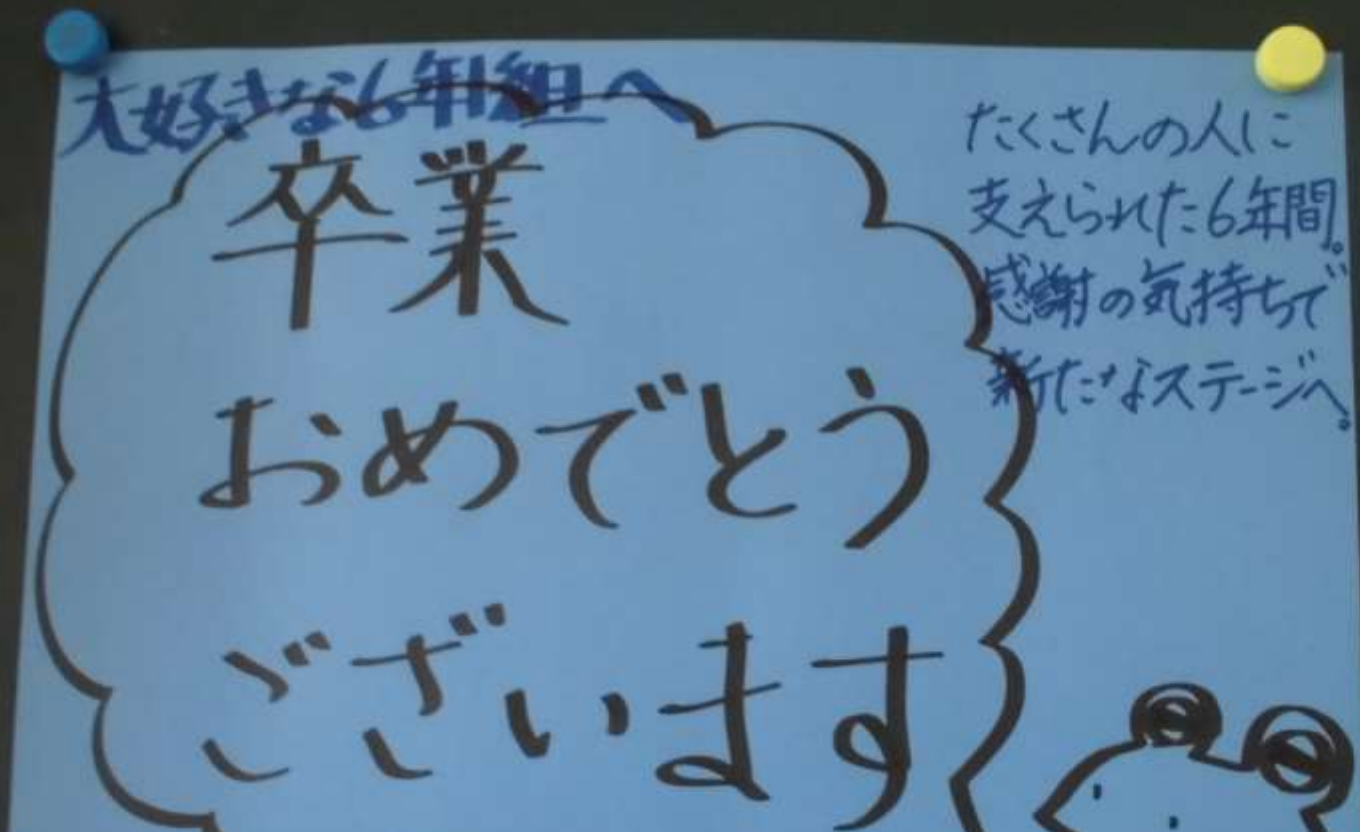 大好きな6年1組へ
卒業
おめでとう
ございます
たくさんの人に
支えられた6年間。
感謝の気持ちで
新たなステージへ。